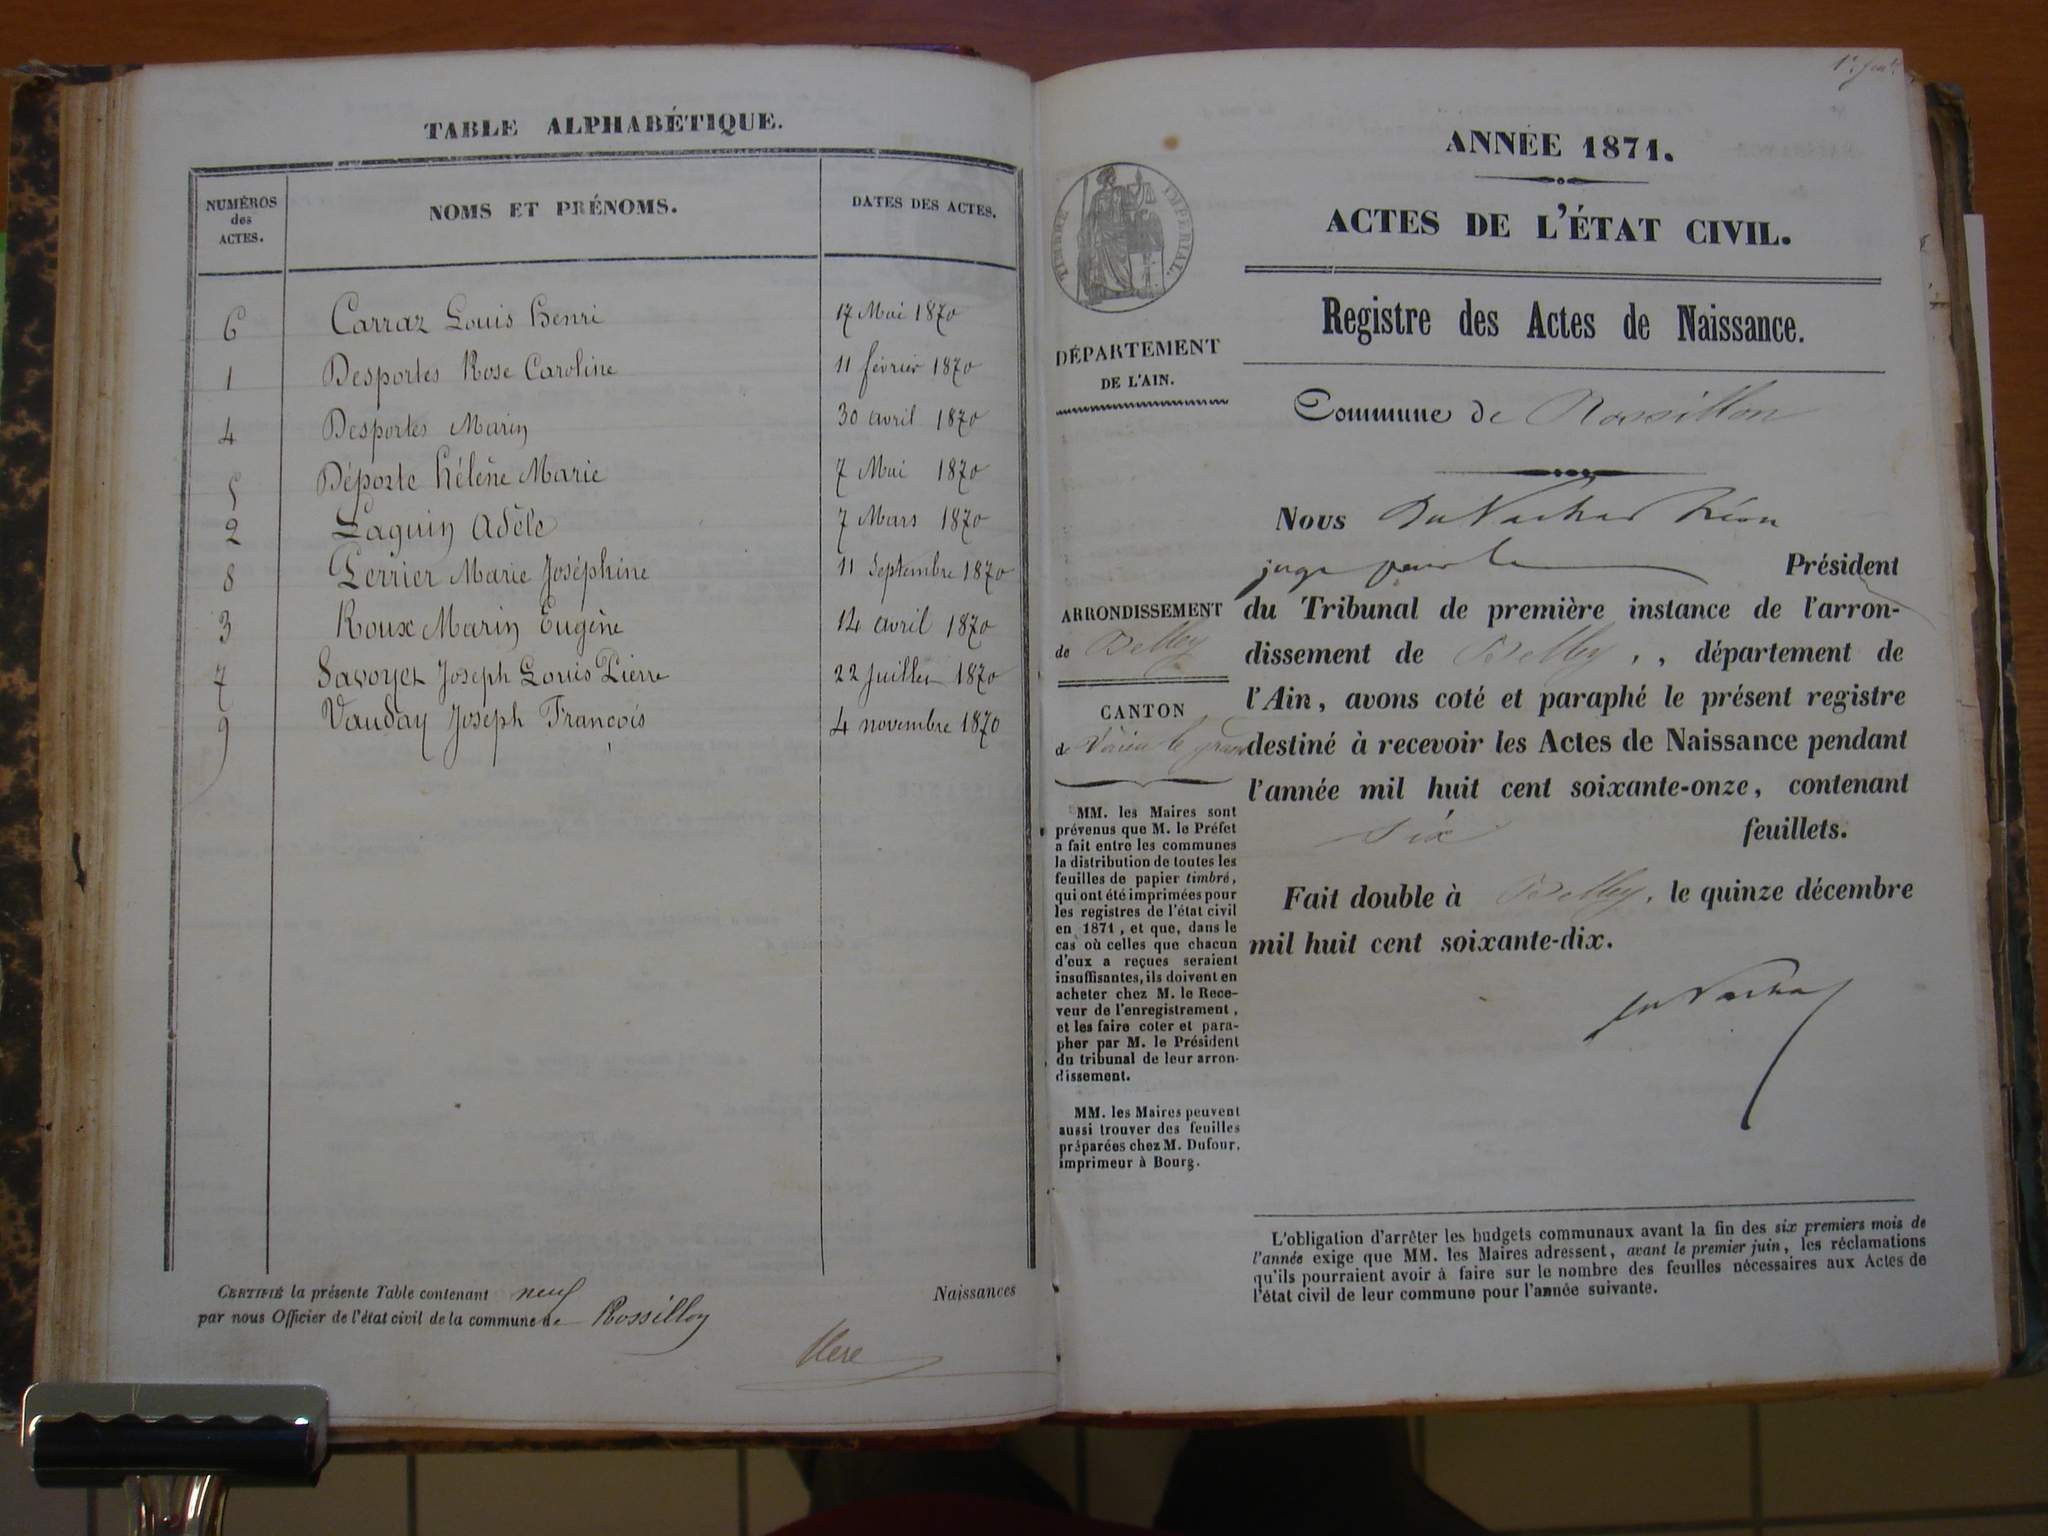 TABLE ALPHABÉTIQUE.
NUMÉROS
des
ACTES.
NOMS ET PRÉNOMS.
DATES DES ACTES.
6 Carraz Louis Henri 17 Mai 1870
1 Desportes Rose Caroline 11 février 1870
4 Desportes Marin 30 avril 1870
5 Déporte Hélène Marie 7 Mai 1870
2 Laguin Adèle 7 Mars 1870
8 Perrier Marie Joséphine 11 Septembre 1870
3 Roux Marin Eugène 14 avril 1870
7 Savoyet Joseph Louis Pierre 22 Juillet 1870
9 Vauday Joseph François 4 novembre 1870
CERTIFIÉ la présente Table contenant neuf Naissances
par nous Officier de l'état civil de la commune de Rossillon
TIMBRE IMPÉRIAL.
DÉPARTEMENT
DE L'AIN.
ARRONDISSEMENT
de Belley
CANTON
de Virieu le grand
MM. les Maires sont
prévenus que M. le Préfet
a fait entre les communes
la distribution de toutes les
feuilles de papier timbré,
qui ont été imprimées pour
les registres de l'état civil
en 1871, et que, dans le
cas où celles que chacun
d'eux a reçues seraient
insuffisantes, ils doivent en
acheter chez M. le Rece-
veur de l'enregistrement,
et les faire coter et para-
pher par M. le Président
du tribunal de leur arron-
dissement.
MM. les Maires peuvent
aussi trouver des feuilles
préparées chez M. Dufour,
imprimeur à Bourg.
ANNÉE 1871.
ACTES DE L'ÉTAT CIVIL.
Registre des Actes de Naissance.
Commune de Rossillon
Nous
juge pour le Président
du Tribunal de première instance de l'arron-
dissement de Belley, , département de
l'Ain, avons coté et paraphé le présent registre
destiné à recevoir les Actes de Naissance pendant
l'année mil huit cent soixante-onze, contenant
six feuillets.
Fait double à Belley, le quinze décembre
mil huit cent soixante-dix.
L'obligation d'arrêter les budgets communaux avant la fin des six premiers mois de
l'année exige que MM. les Maires adressent, avant le premier juin, les réclamations
qu'ils pourraient avoir à faire sur le nombre des feuilles nécessaires aux Actes de
l'état civil de leur commune pour l'année suivante.